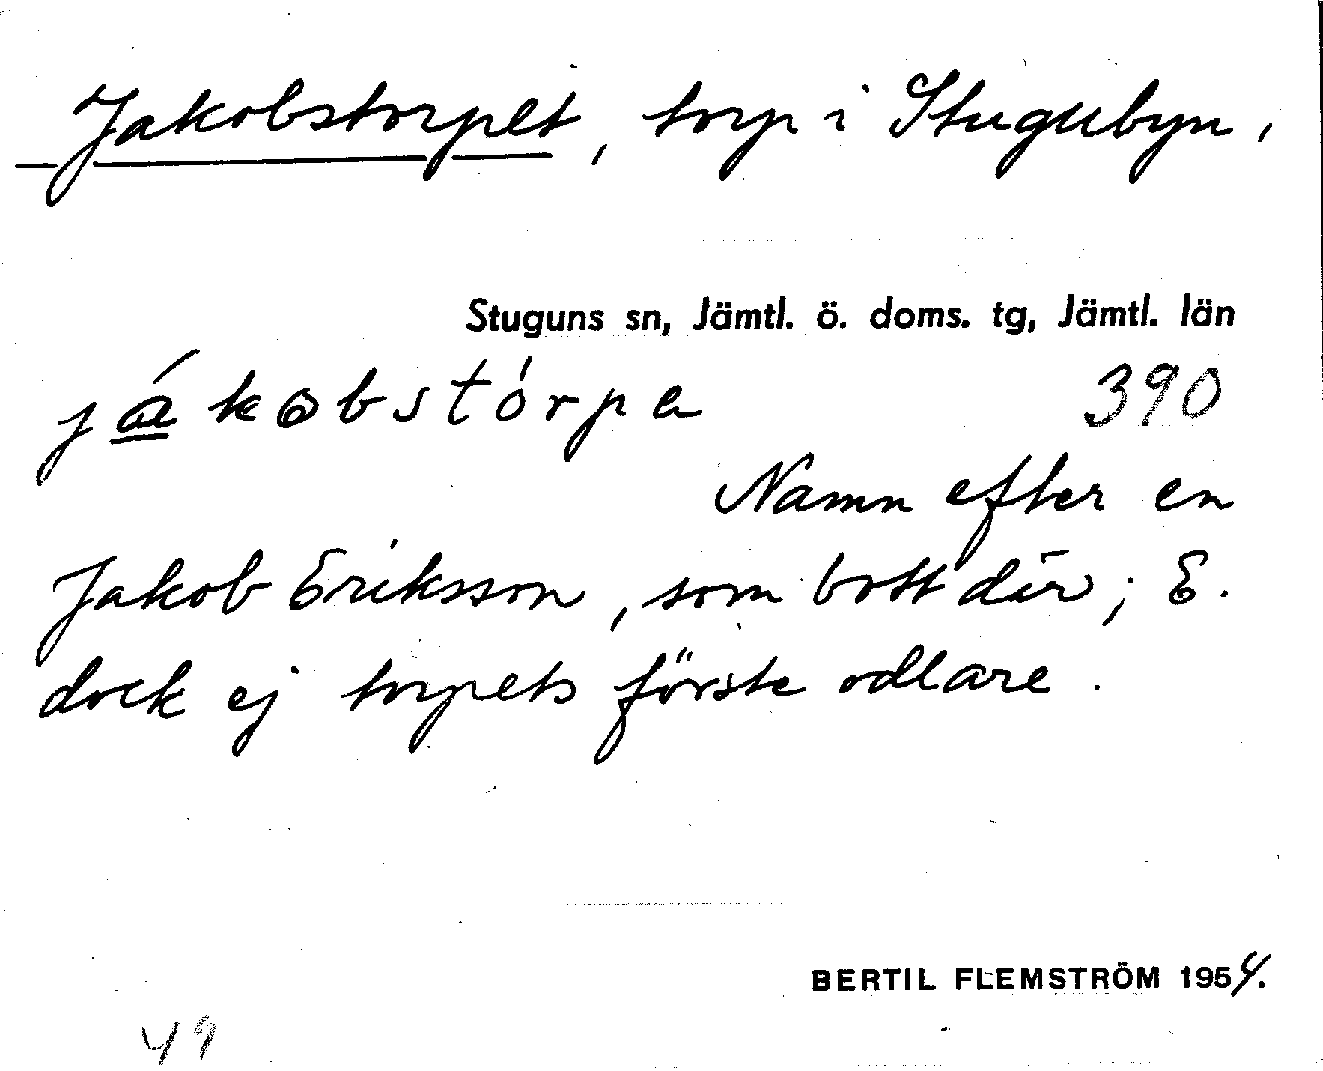 Jakobstorpet, torp i Stugubyn,
Stuguns sn, Jämtl. ö. doms. tg, Jämtl. län
já̲kobstórpa 390
Namn efter en
Jakob Eriksson, som bott där; E.
dock ej torpets förste odlare.
BERTIL FLEMSTRÖM 1954.
49